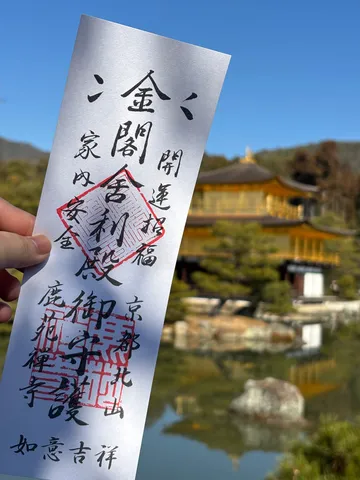 開運招福
金閣舎利殿御守護
家内安全
京都北山
鹿苑禅寺
如意吉祥